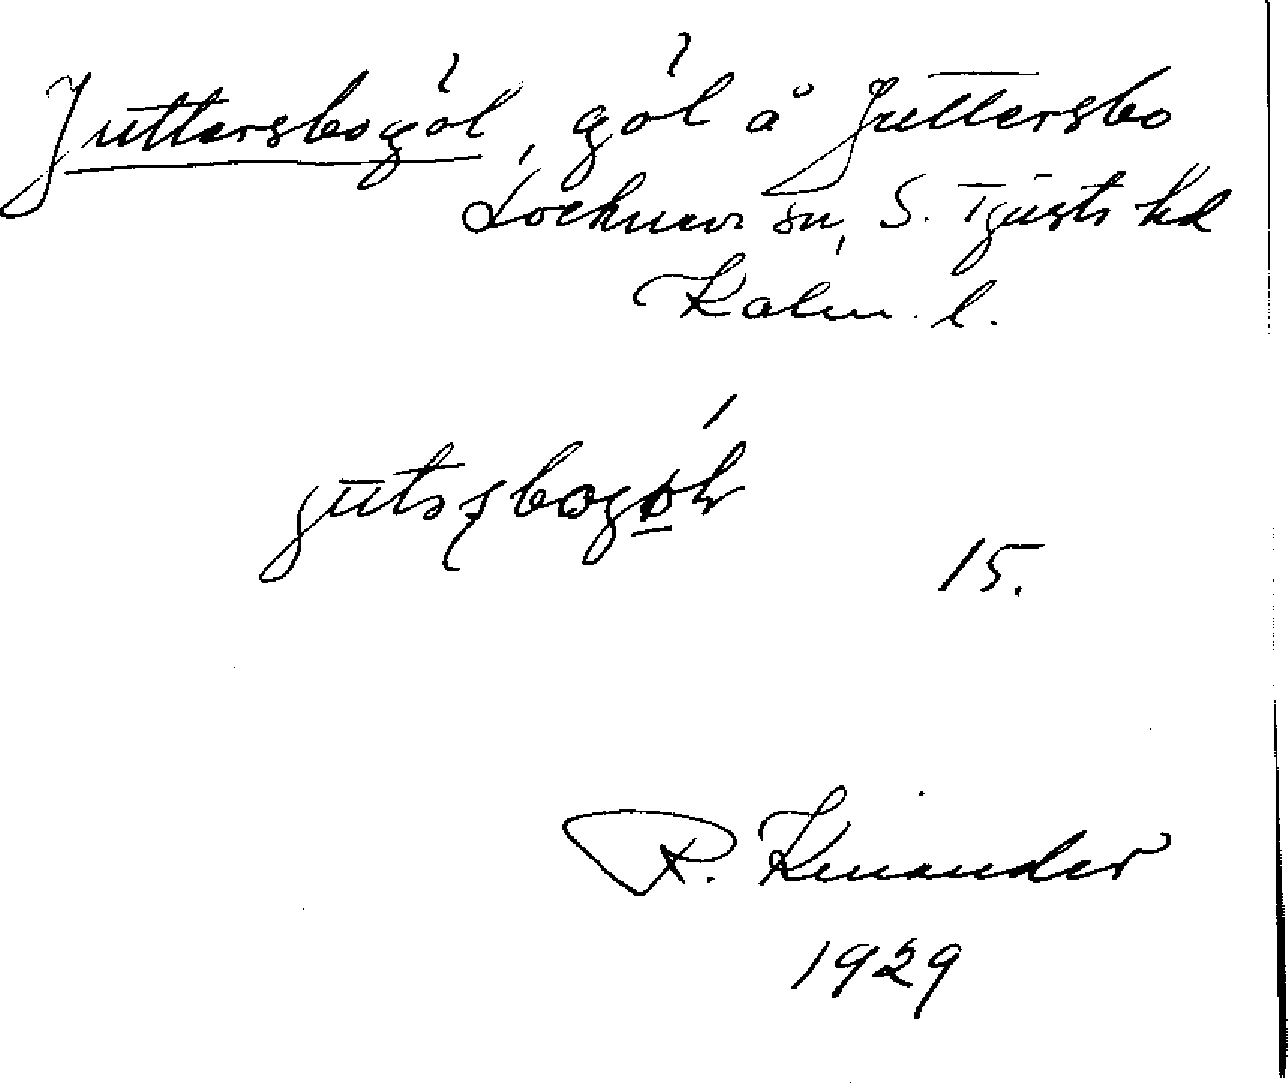 Juttersbogöl, göl å Juttersbo
Locknevi sn, S. Tjusts hd
Kalm. l.
15.
R. Kinander
1929